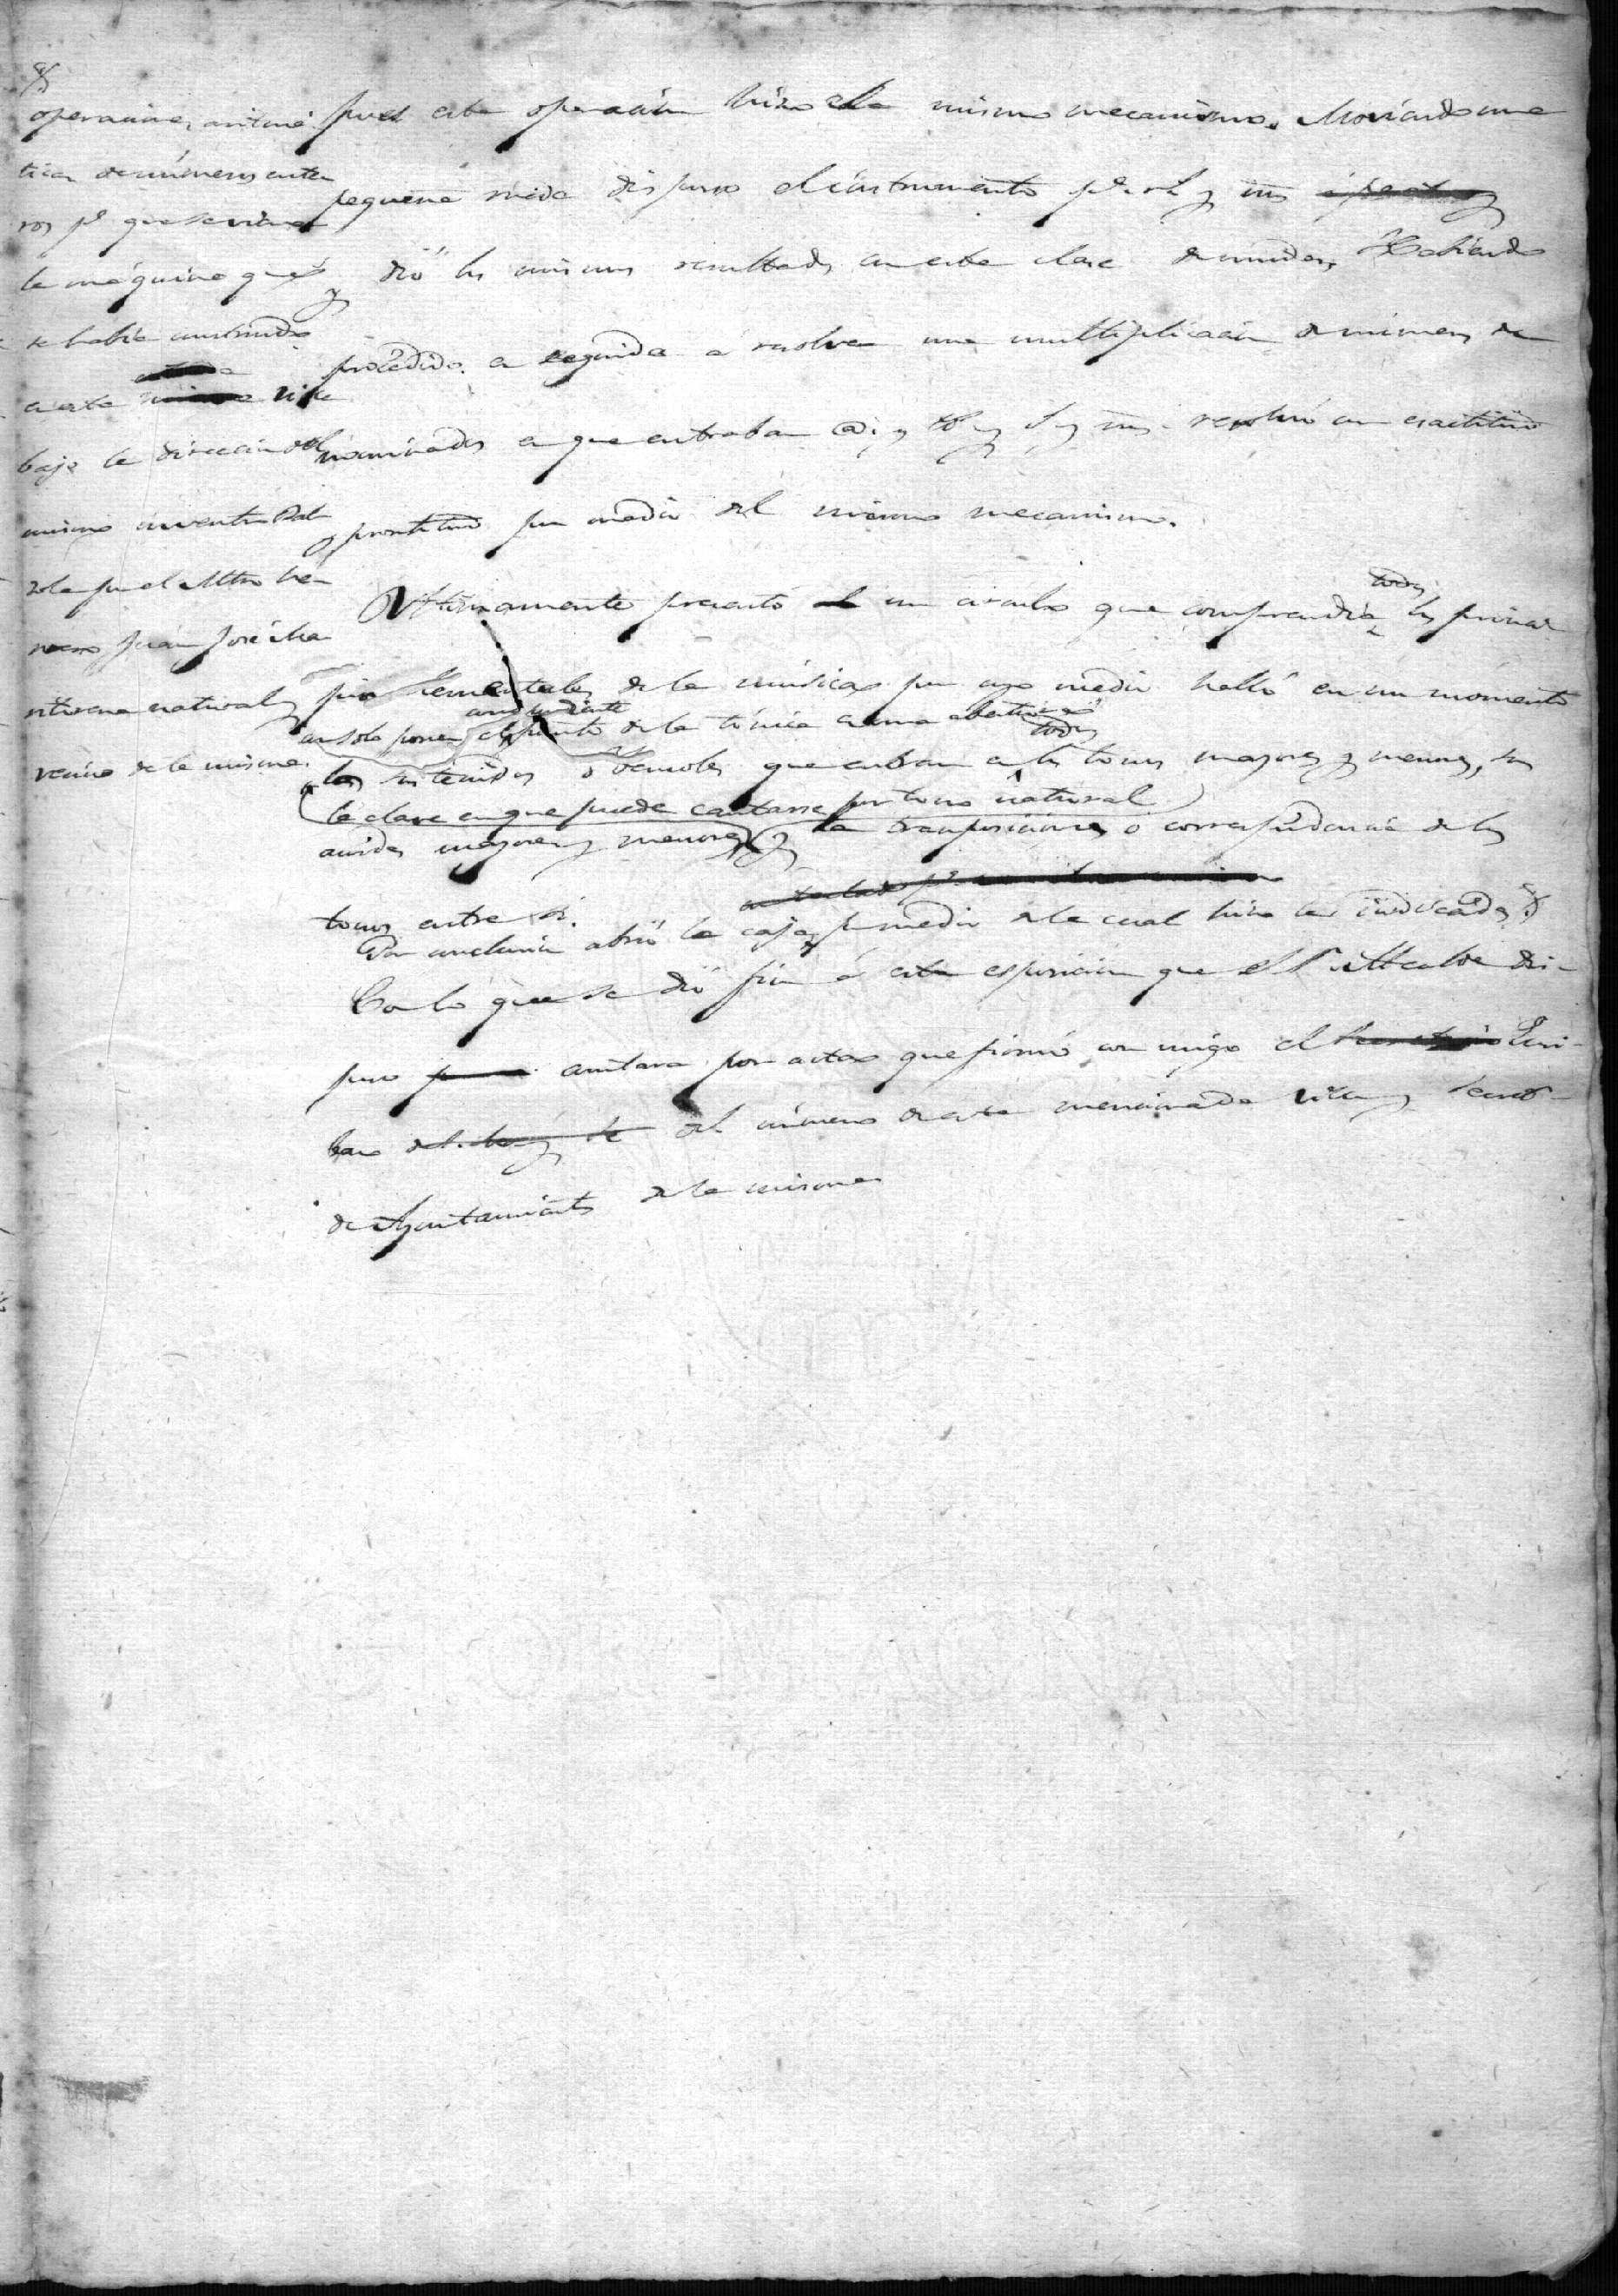 pues esta operacion hizo el mismo mecanismo. Moviendo una
pequeña rueda dispuso el instrumento pª rl. y ms
y dió los mismos resultados en esta clase de unidades. Habiendo
procedido en seguida á resolver una multiplicacion de números de
nominados en que entraban @s y lb y rl y ms resolvió con esactitud
y prontitud por medio del mismo mecanismo.
Ultimamente presentó un circulo que comprendia todos los princi
pios elementales de la música por cuyo medio halló en un momento
con solo poner el punto de la tónica en una abertura
todos
los sostenidos ó bemoles que entran en los tonos mayores y menores, sus
la clave en que puede cantarse por tono natural
acordes mayores y menores y la transposicion o correspondencia de los
tonos entre sí.
Por conclusion abrió la caja por medio de la cual hizo las indicadas
Con lo que se dió fin á esta esposicion que el Sr Alcalde dis-
puso constara por acta que firmó con migo el Escri-
bano del número de esta mencionada villa y Secret
de Ayuntamiento de la misma
operaciones aritmé
ticas de números ente
ros pª que servia
la máquina que
se habia construido
en esta villa
bajo la direccion del
mismo inventor
por el Mtro he-
rrero Juan José
natural y
vecino de la misma.